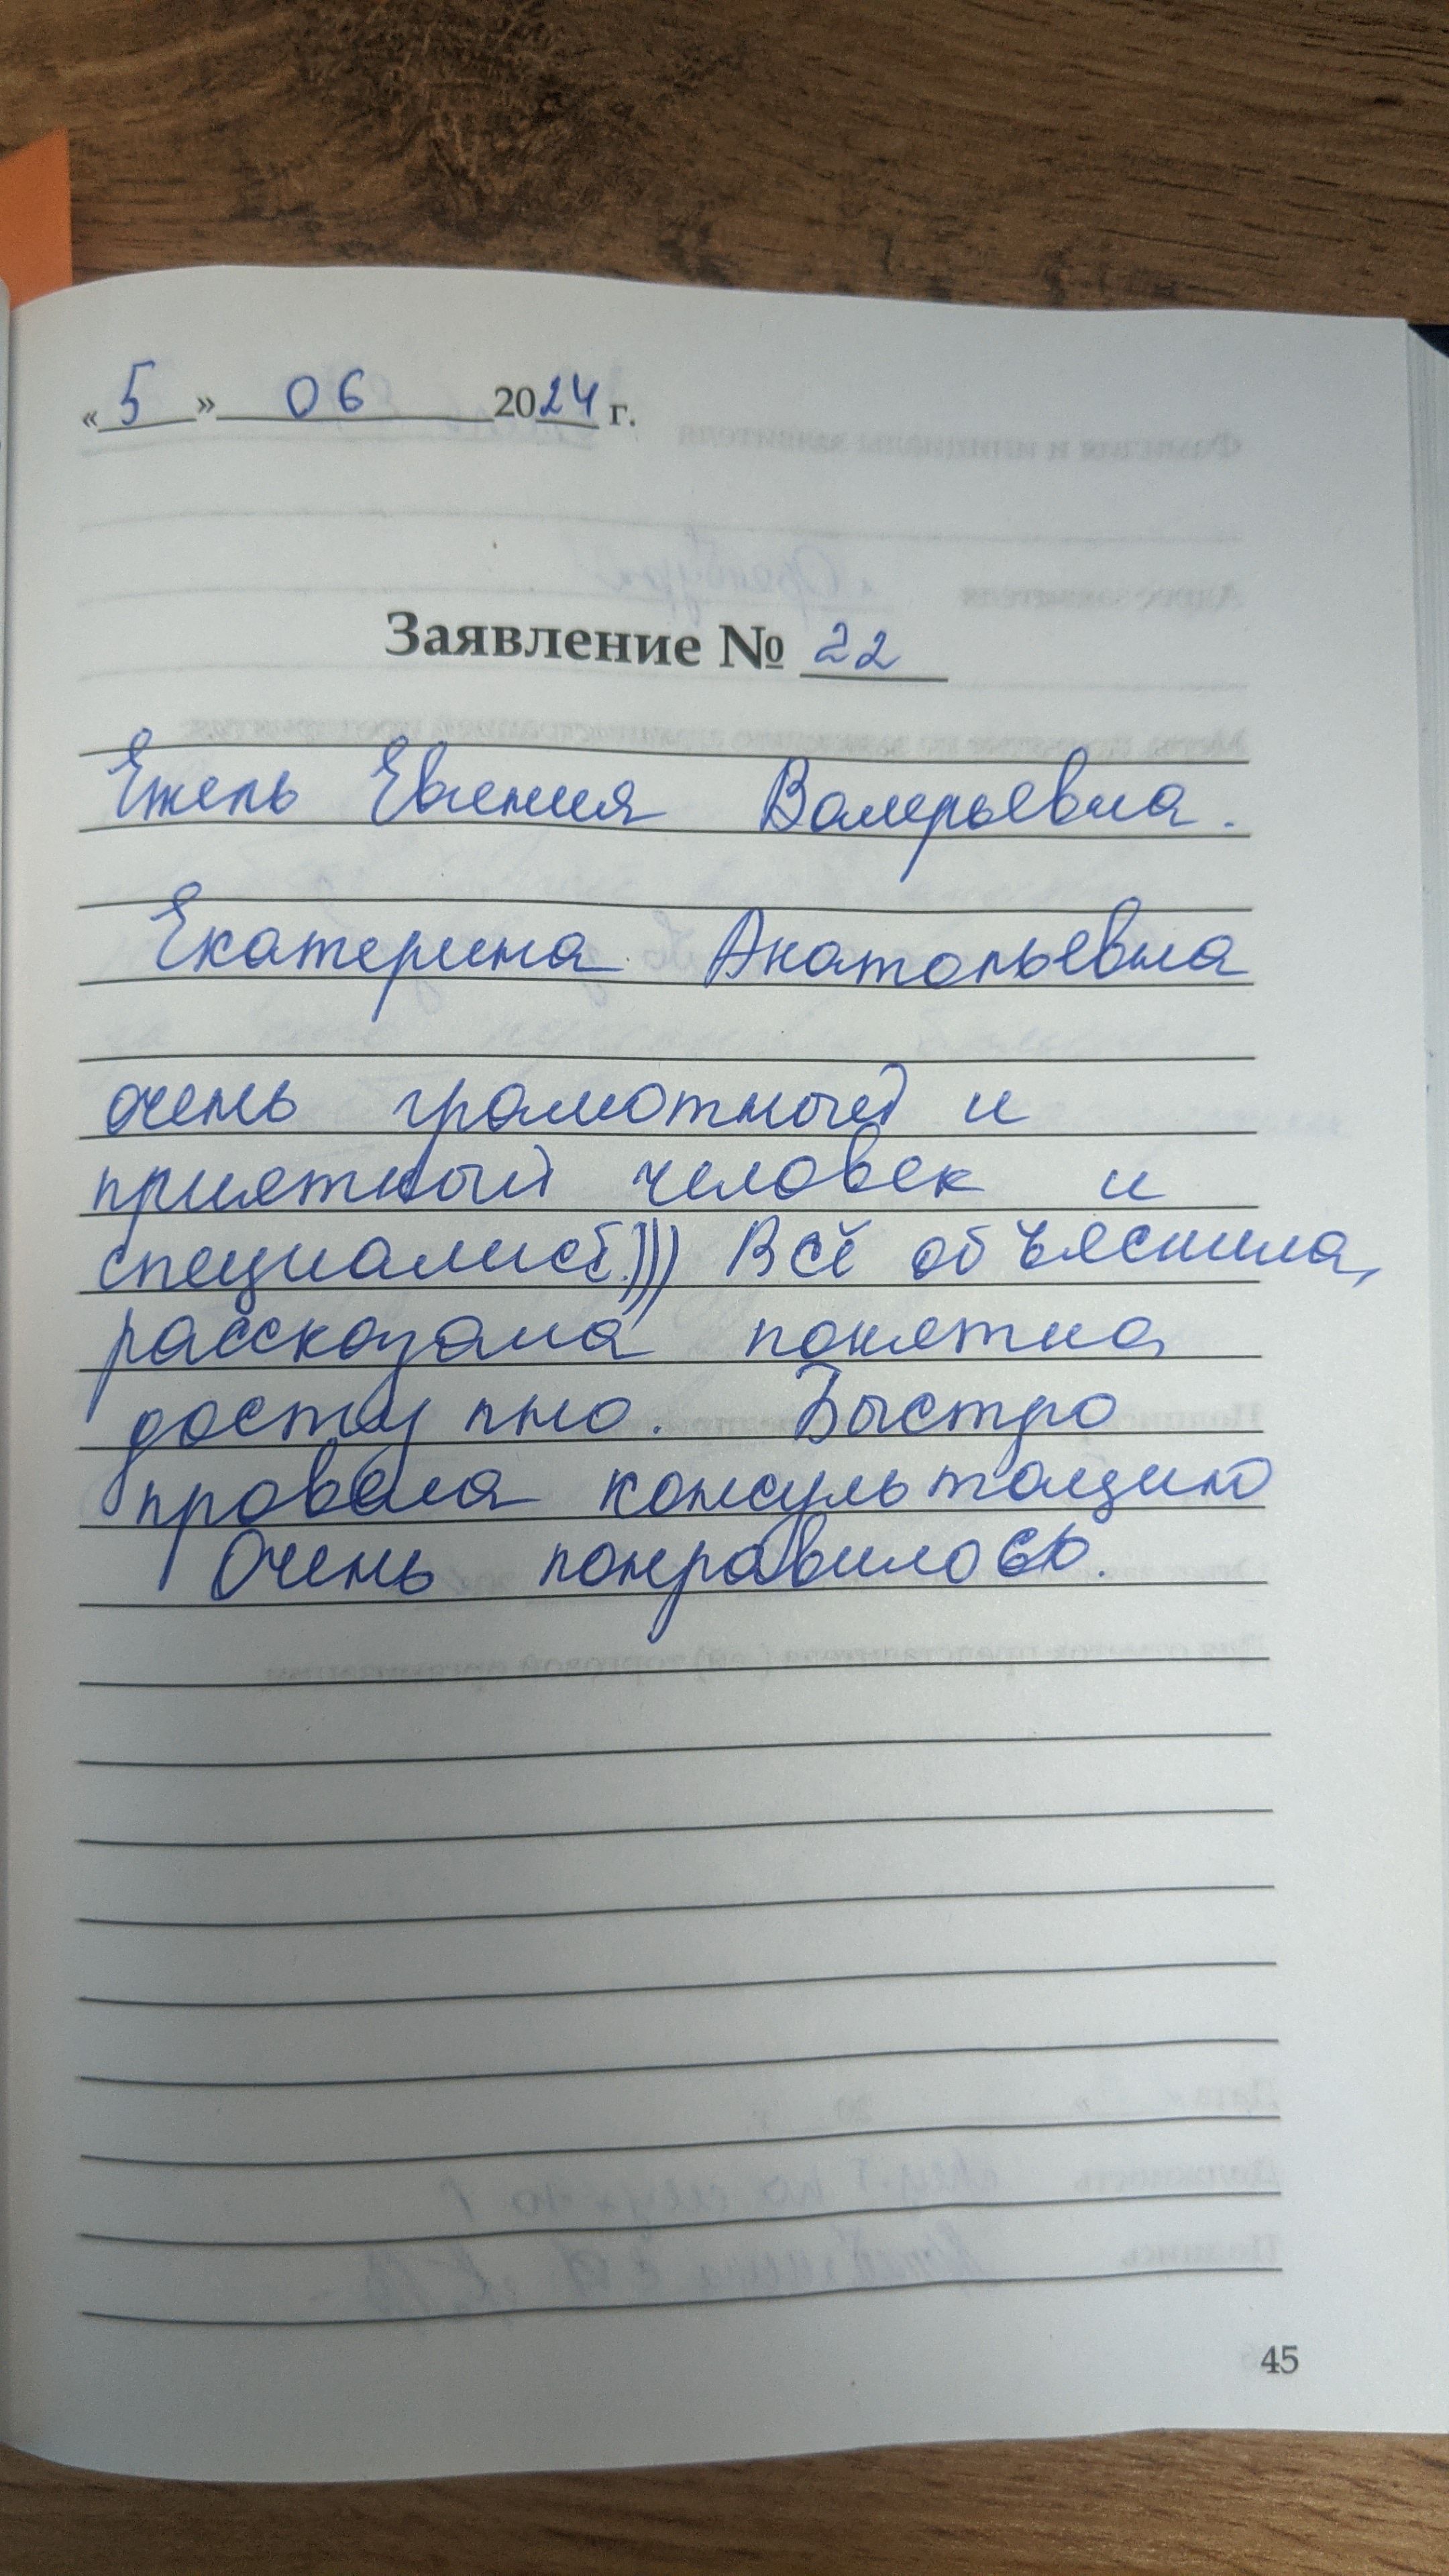 «5» 06 2024 г.
Заявление № 22
Ежель Евгения Валерьевна.
Екатерина Анатольевна
очень грамотный и
приятный человек и
специалист))) Всё объяснила,
рассказала понятно
доступно. Быстро
провела консультацию
Очень понравилось.
45